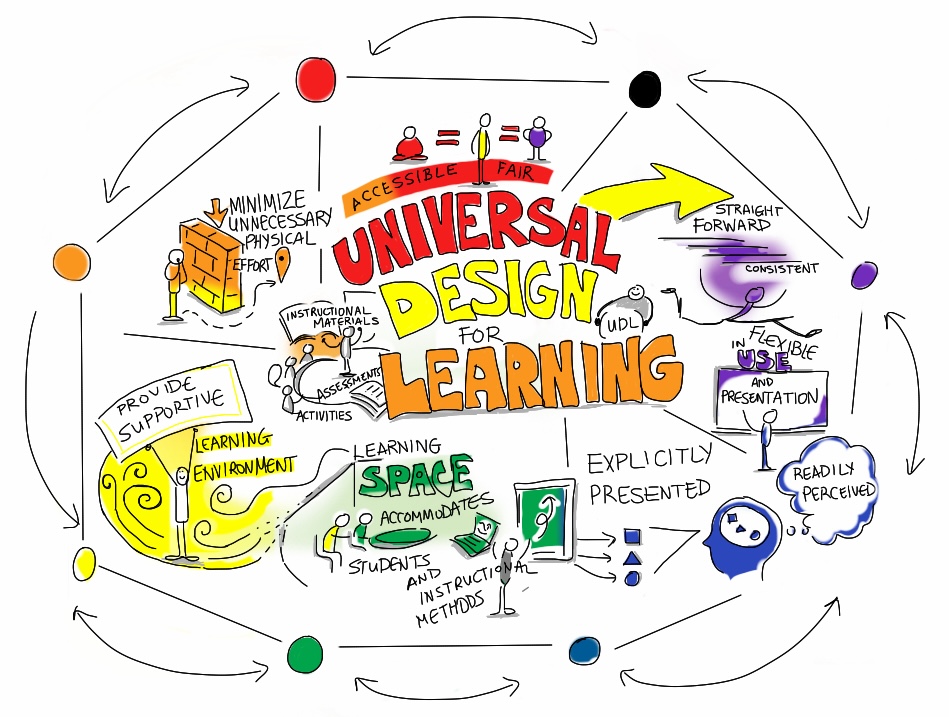 ACCESSIBLE FAIR
UNIVERSAL
DESIGN
FOR
LEARNING
UDL
MINIMIZE
UNNECESSARY
PHYSICAL
EFFORT
INSTRUCTIONAL
MATERIALS
ASSESSMENTS
ACTIVITIES
STRAIGHT
FORWARD
CONSISTENT
IN FLEXIBLE
USE
AND
PRESENTATION
PROVIDE
SUPPORTIVE
LEARNING
ENVIRONMENT
LEARNING
SPACE
ACCOMMODATES
STUDENTS
AND
INSTRUCTIONAL
METHODS
EXPLICITLY
PRESENTED
READILY
PERCEIVED